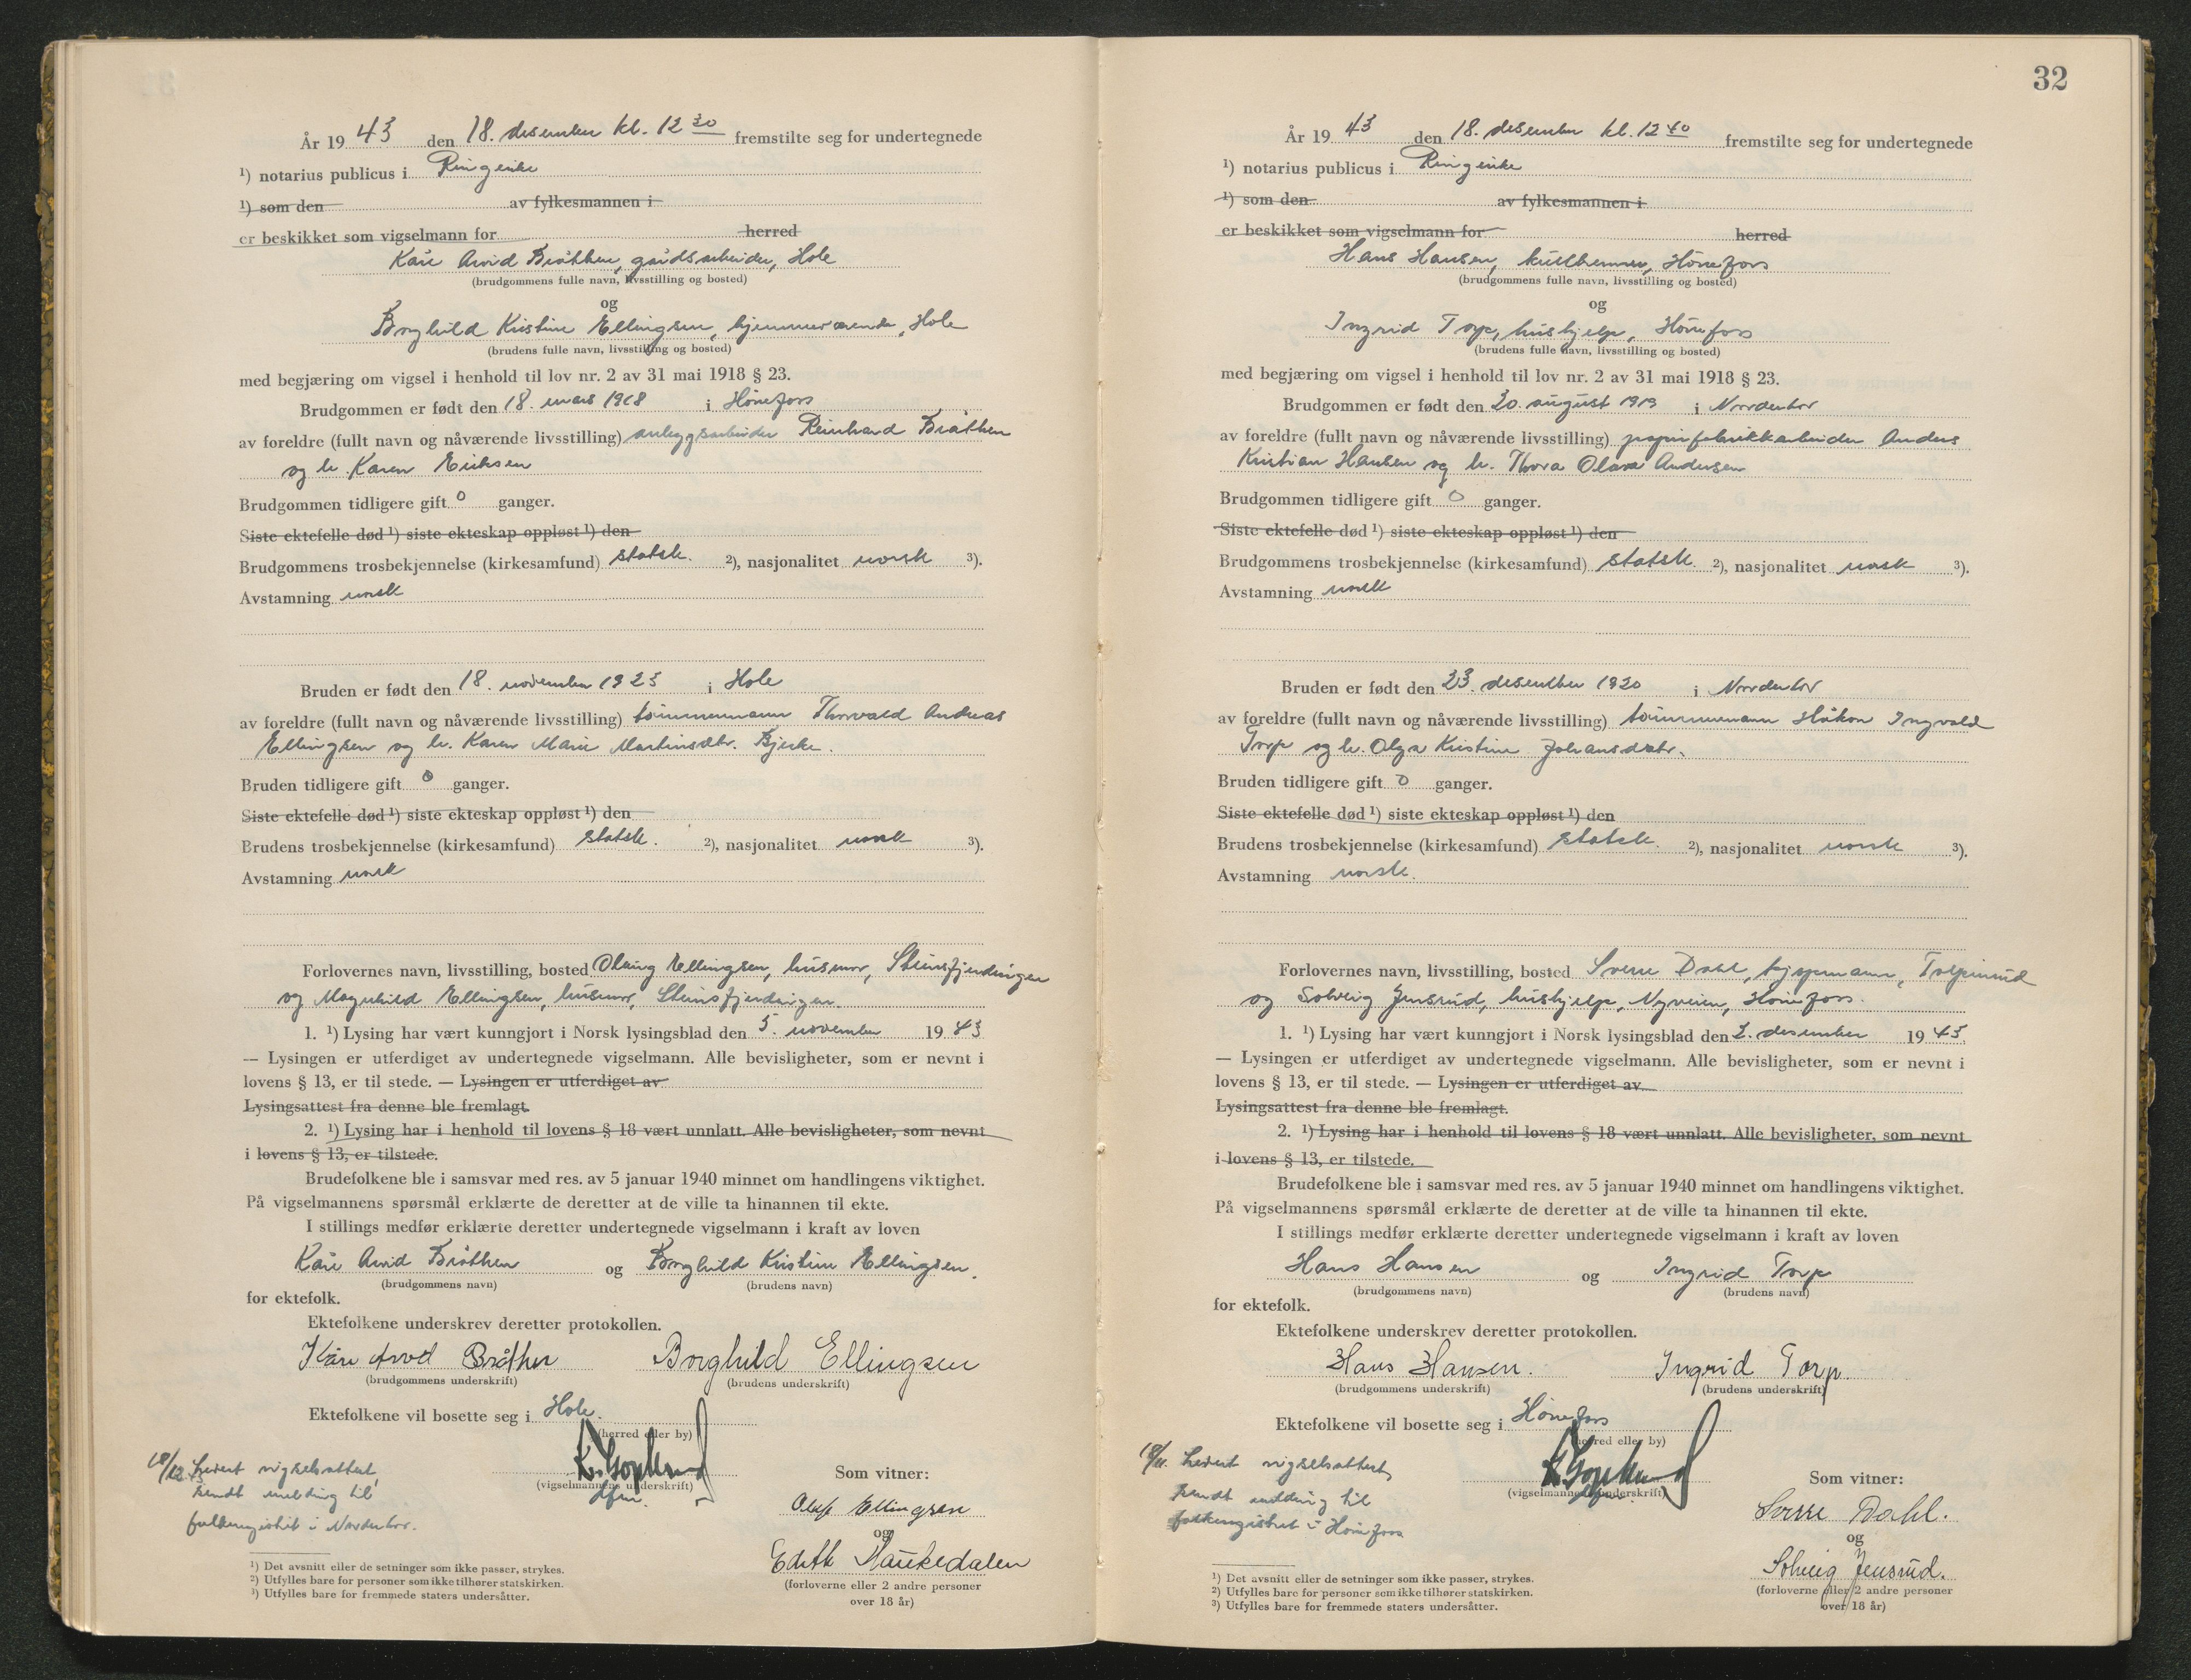 År 19 43 den 18. desember kl. 12 30 fremstilte seg for undertegnede
1) notarius publicus i Ringerike
1) som den av fylkesmannen i
er beskikket som vigselmann for herred
Kåre Arvid Bråthen, gårdsarbeider, Hole
(brudgommens fulle navn, livsstilling og bosted)
og
Borghild Kristine Ellingsen, hjemmeværende, Hole
(brudens fulle navn, livsstilling og bosted)
med begjæring om vigsel i henhold til lov nr. 2 av 31 mai 1918 § 23.
Brudgommen er født den 18. mars 1918 i Hønefoss
av foreldre (fullt navn og nåværende livsstilling) anleggsarbeider Reinhard Bråthen
og h. Karen Eriksen
Brudgommen tidligere gift 0 ganger.
Siste ektefelle død 1) siste ekteskap oppløst 1) den
Brudgommens trosbekjennelse (kirkesamfund) statsk. 2), nasjonalitet norsk 3).
Avstamning norsk
Bruden er født den 18. november 1923 i Hole
av foreldre (fullt navn og nåværende livsstilling) tømmermann Thorvald Andreas
Ellingsen og h. Karen Marie Martinsdtr. Bjerke.
Bruden tidligere gift 0 ganger.
Siste ektefelle død 1) siste ekteskap oppløst 1) den
Brudens trosbekjennelse (kirkesamfund) statsk. 2), nasjonalitet norsk 3).
Avstamning norsk
Forlovernes navn, livsstilling, bosted Ellingsen, husmor, Steinsfjerdingen
og Magnhild Ellingsen, husmor, Steinsfjerdingen.
1. 1) Lysing har vært kunngjort i Norsk lysingsblad den 5. november 19 43
— Lysingen er utferdiget av undertegnede vigselmann. Alle bevisligheter, som er nevnt i
lovens § 13, er til stede. — Lysingen er utferdiget av
Lysingsattest fra denne ble fremlagt.
2. 1) Lysing har i henhold til lovens § 18 vært unnlatt. Alle bevisligheter, som nevnt
i lovens § 13, er tilstede.
Brudefolkene ble i samsvar med res. av 5 januar 1940 minnet om handlingens viktighet.
På vigselmannens spørsmål erklærte de deretter at de ville ta hinannen til ekte.
I stillings medfør erklærte deretter undertegnede vigselmann i kraft av loven
Kåre Arvid Bråthen og Borghild Kristine Ellingsen.
(brudgommens navn) (brudens navn)
for ektefolk.
Ektefolkene underskrev deretter protokollen.
Kåre Arvid Bråthen Borghild Ellingsen
(brudgommens underskrift) (brudens underskrift)
Ektefolkene vil bosette seg i Hole.
(herred eller by)
18/12 Levert vigselsattest,
sendt melding til
folkeregistret i Norderhov.
(vigselmannens underskrift)
Som vitner:
Oluf Ellingsen
og
Edith Haukedalen
(forloverne eller 2 andre personer
over 18 år)
1) Det avsnitt eller de setninger som ikke passer, strykes.
2) Utfylles bare for personer som ikke tilhører statskirken.
3) Utfylles bare for fremmede staters undersåtter.
32
År 19 43 den 18. desember kl. 12 40 fremstilte seg for undertegnede
1) notarius publicus i Ringerike
1) som den av fylkesmannen i
er beskikket som vigselmann for herred
Hans Hansen, kullbrenner, Hønefoss
(brudgommens fulle navn, livsstilling og bosted)
og
Ingrid Torp, hushjelp, Hønefoss
(brudens fulle navn, livsstilling og bosted)
med begjæring om vigsel i henhold til lov nr. 2 av 31 mai 1918 § 23.
Brudgommen er født den 20. august 1919 i Norderhov
av foreldre (fullt navn og nåværende livsstilling) papirfabrikkarbeider Anders
Kristian Hansen og h. Thora Olava Andersen
Brudgommen tidligere gift 0 ganger.
Siste ektefelle død 1) siste ekteskap oppløst 1) den
Brudgommens trosbekjennelse (kirkesamfund) statsk. 2), nasjonalitet norsk 3).
Avstamning norsk
Bruden er født den 23. desember 1920 i Norderhov
av foreldre (fullt navn og nåværende livsstilling) tømmermann Håkon Ingvald
Torp og h. Olga Kristine Johansdatr.
Bruden tidligere gift 0 ganger.
Siste ektefelle død 1) siste ekteskap oppløst 1) den
Brudens trosbekjennelse (kirkesamfund) statsk. 2), nasjonalitet norsk 3).
Avstamning norsk.
Forlovernes navn, livsstilling, bosted Sverre Dahl, Tolpinrud
og Solveig Jensrud, hushjelp, Nyveien, Hønefoss.
1. 1) Lysing har vært kunngjort i Norsk lysingsblad den 2. desember 19 43.
— Lysingen er utferdiget av undertegnede vigselmann. Alle bevisligheter, som er nevnt i
lovens § 13, er til stede. — Lysingen er utferdiget av
Lysingsattest fra denne ble fremlagt.
2. 1) Lysing har i henhold til lovens § 18 vært unnlatt. Alle bevisligheter, som nevnt
i lovens § 13, er tilstede.
Brudefolkene ble i samsvar med res. av 5 januar 1940 minnet om handlingens viktighet.
På vigselmannens spørsmål erklærte de deretter at de ville ta hinannen til ekte.
I stillings medfør erklærte deretter undertegnede vigselmann i kraft av loven
Hans Hansen og Ingrid Torp
(brudgommens navn) (brudens navn)
for ektefolk.
Ektefolkene underskrev deretter protokollen.
Hans Hansen. Ingrid Torp.
(brudgommens underskrift) (brudens underskrift)
Ektefolkene vil bosette seg i Hønefoss
(herred eller by)
Levert vigselsattest,
sendt melding til
folkeregistret i Hønefoss
(vigselmannens underskrift)
Som vitner:
Sverre Dahl.
og
Solveig Jensrud.
(forloverne eller 2 andre personer
over 18 år)
1) Det avsnitt eller de setninger som ikke passer, strykes.
2) Utfylles bare for personer som ikke tilhører statskirken.
3) Utfylles bare for fremmede staters undersåtter.